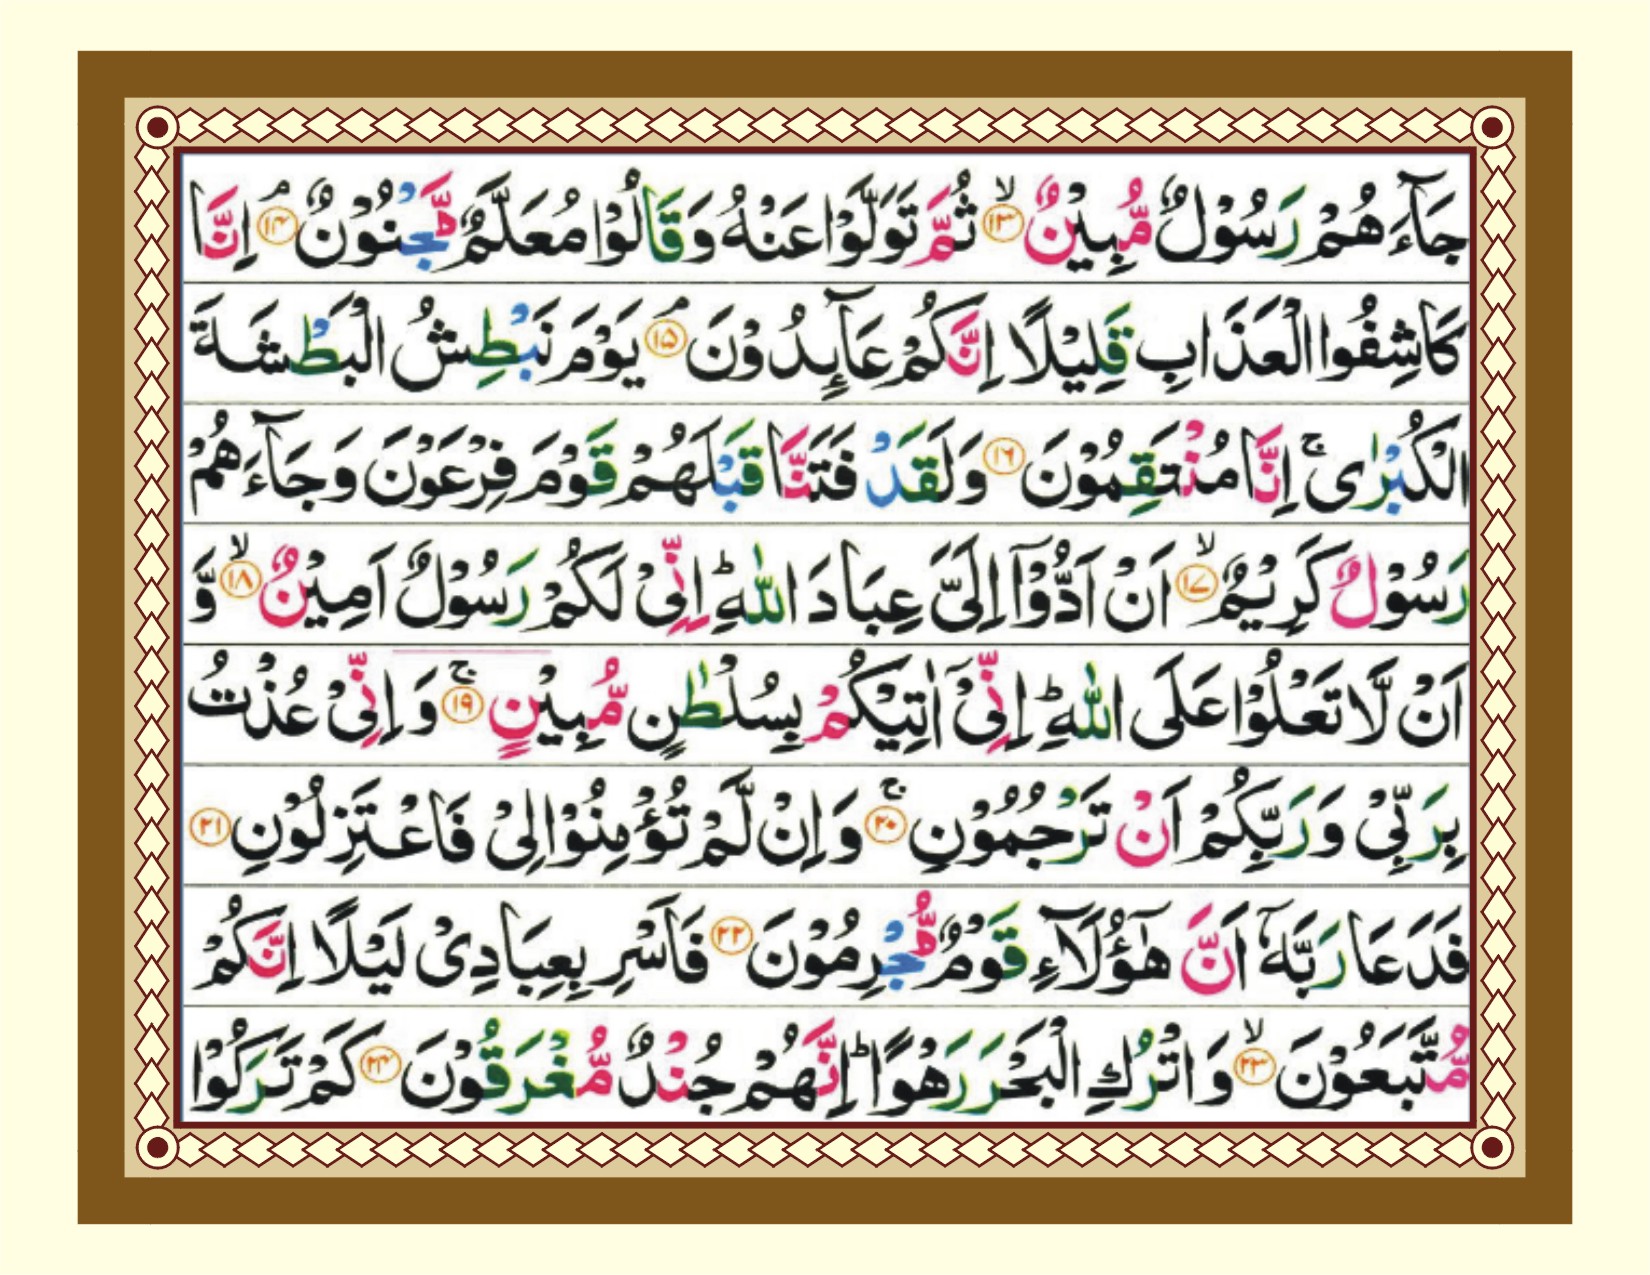 جَآءَهُمْ رَسُوْلٌ مُّبِيْنٌ ۙ﴿۱۳﴾ ثُمَّ تَوَلَّوْا عَنْهُ وَقَالُوْا مُعَلَّمٌ مَّجْنُوْنٌ ۘ﴿۱۴﴾ اِنَّا
كَاشِفُوا الْعَذَابِ قَلِيْلًا اِنَّكُمْ عَآئِدُوْنَ ۘ﴿۱۵﴾ يَوْمَ نَبْطِشُ الْبَطْشَةَ
الْكُبْرٰى ۚ اِنَّا مُنْتَقِمُوْنَ ﴿۱۶﴾ وَلَقَدْ فَتَنَّا قَبْلَهُمْ قَوْمَ فِرْعَوْنَ وَجَآءَهُمْ
رَسُوْلٌ كَرِيْمٌ ۙ﴿۱۷﴾ اَنْ اَدُّوْۤا اِلَىَّ عِبَادَ اللّٰهِ ؕ اِنِّىْ لَكُمْ رَسُوْلٌ اَمِيْنٌ ۙ﴿۱۸﴾ وَّ
اَنْ لَّا تَعْلُوْا عَلَى اللّٰهِ ؕ اِنِّىْۤ اٰتِيْكُمْ بِسُلْطٰنٍ مُّبِيْنٍ ۚ﴿۱۹﴾ وَاِنِّىْ عُذْتُ
بِرَبِّىْ وَرَبِّكُمْ اَنْ تَرْجُمُوْنِ ۚ﴿۲۰﴾ وَاِنْ لَّمْ تُؤْمِنُوْا لِىْ فَاعْتَزِلُوْنِ ﴿۲۱﴾
فَدَعَا رَبَّهٗۤ اَنَّ هٰٓؤُلَآءِ قَوْمٌ مُّجْرِمُوْنَ ﴿۲۲﴾ فَاَسْرِ بِعِبَادِىْ لَيْلًا اِنَّكُمْ
مُّتَّبَعُوْنَ ۙ﴿۲۳﴾ وَاتْرُكِ الْبَحْرَ رَهْوًا ؕ اِنَّهُمْ جُنْدٌ مُّغْرَقُوْنَ ﴿۲۴﴾ كَمْ تَرَكُوْا